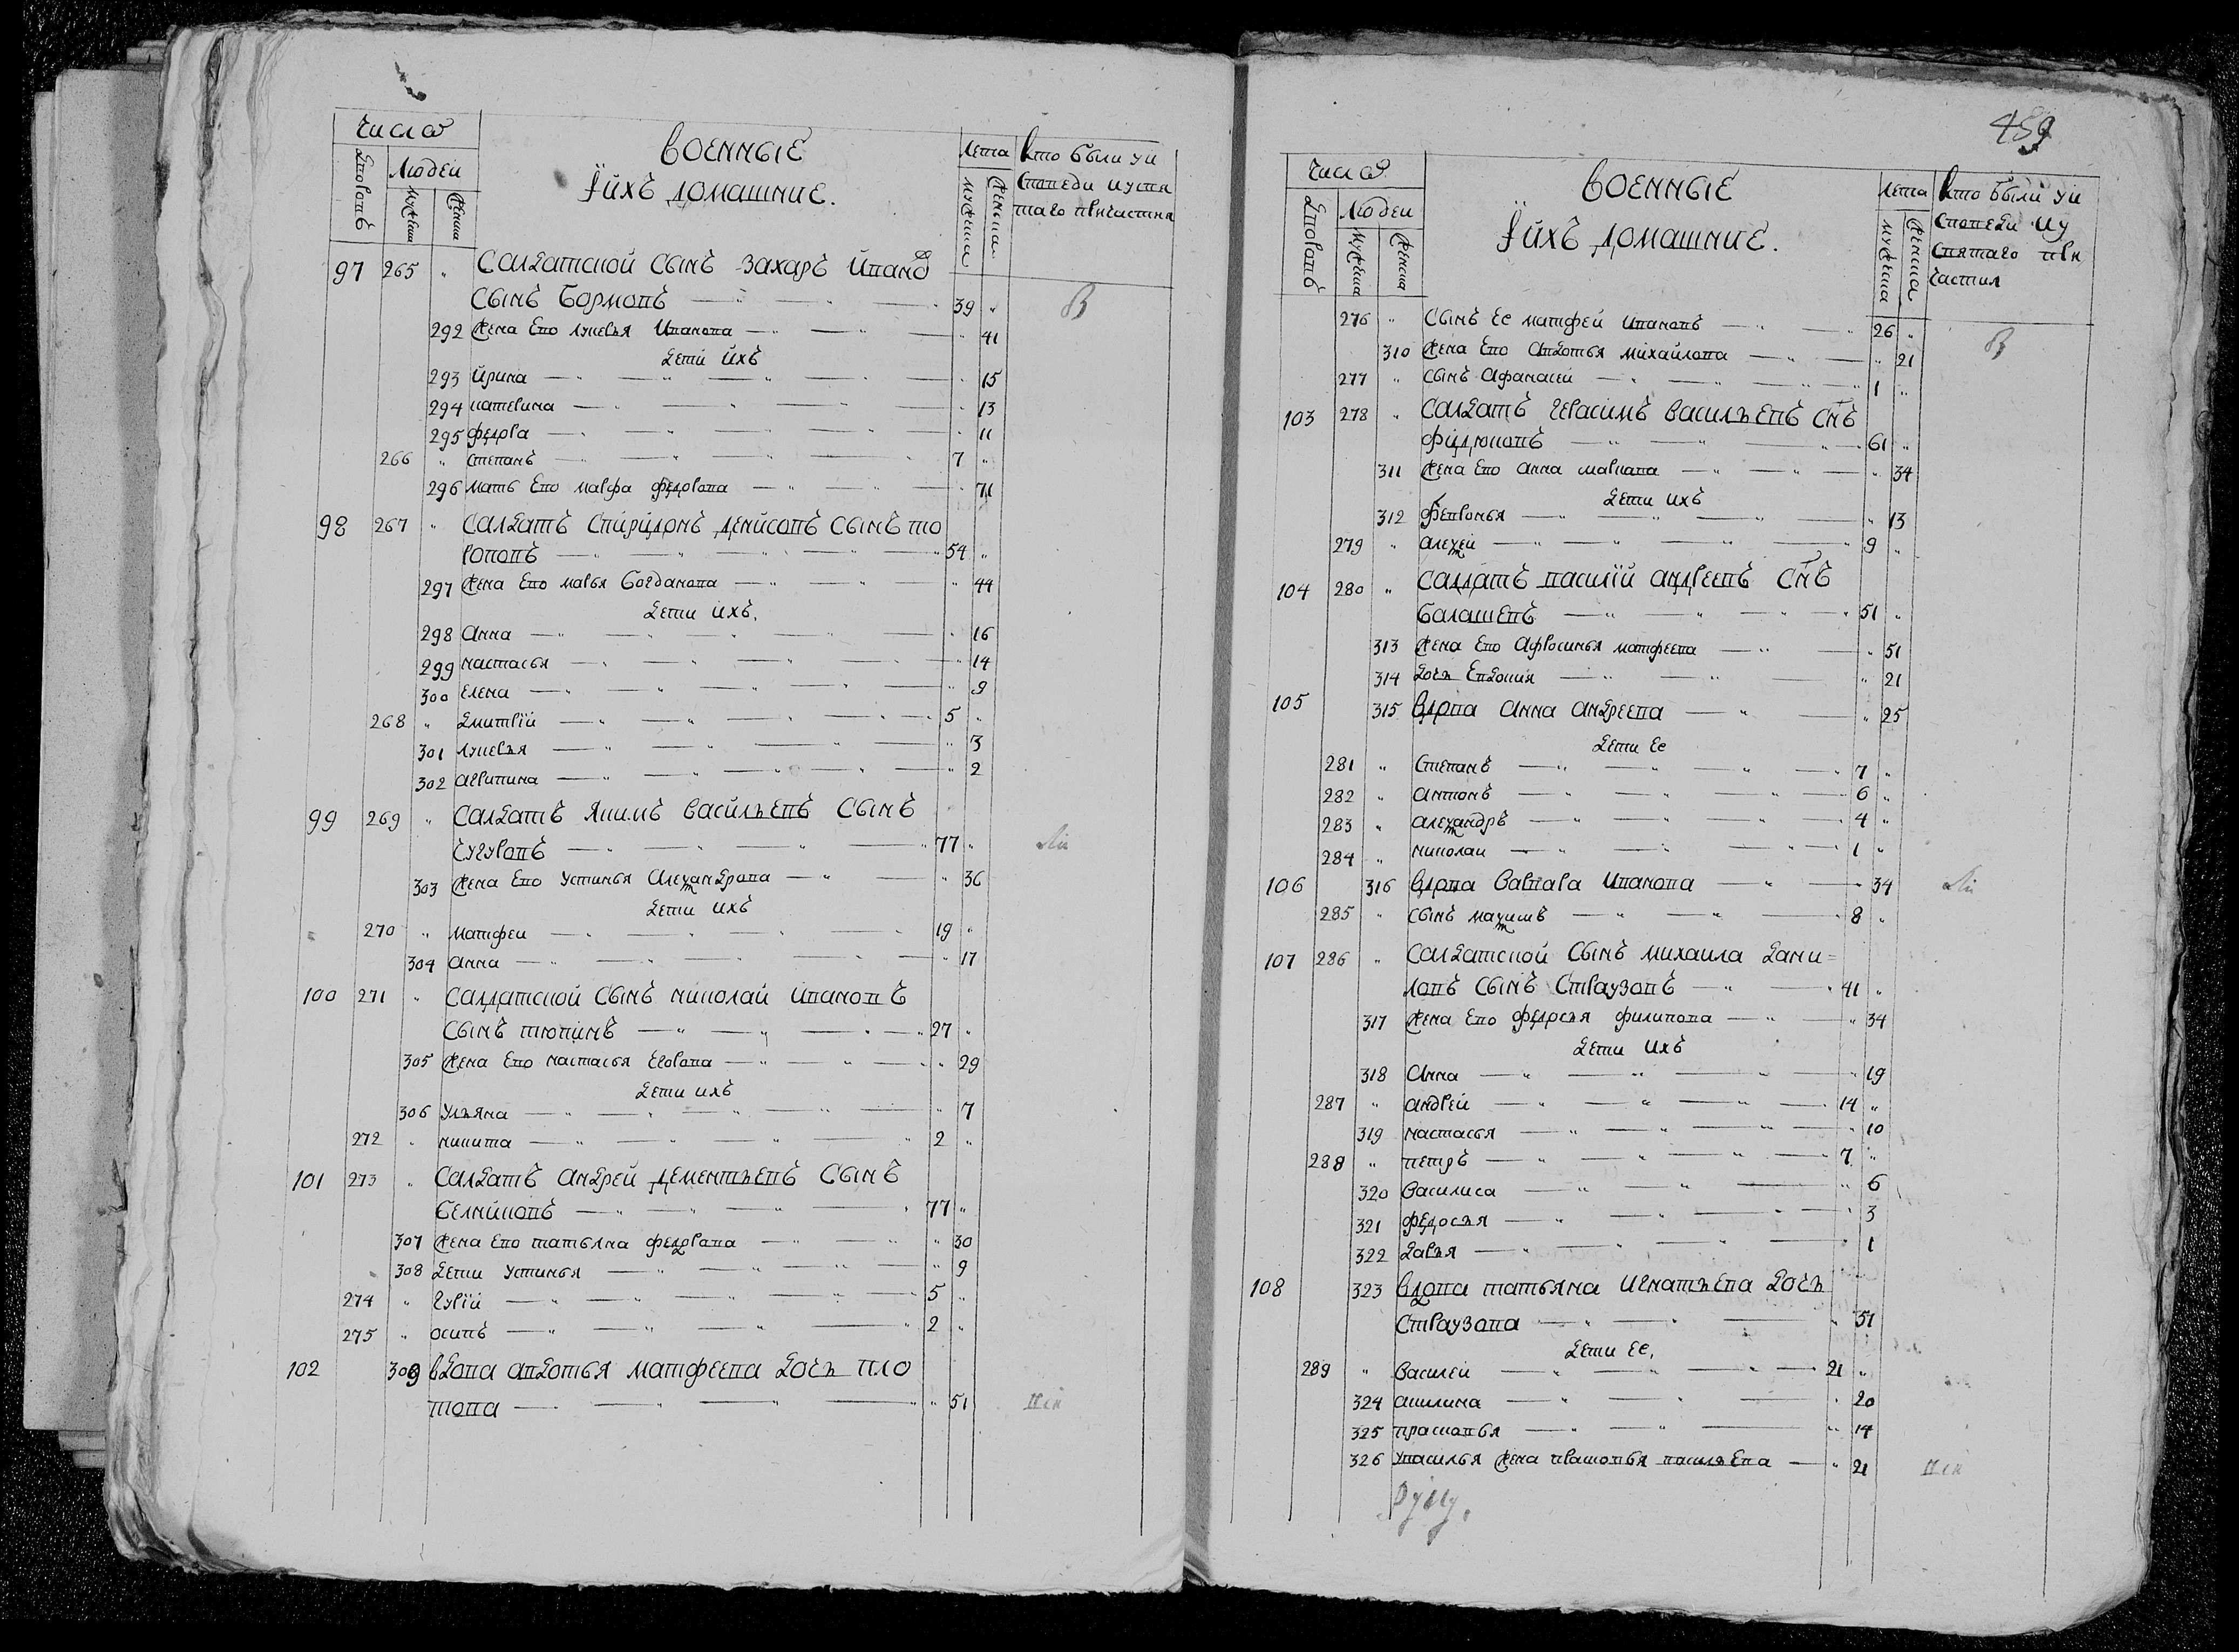 Число
Дворовъ
Людей
Мужеска
Женска
ВОЕННЫЕ
И ихъ домашние.
Лета
Мужеска
Женска
Кто были у и
споведи и свя
таго причастия
97 265 " Салдатской сынъ Захаръ Иванов
сынъ Бормовъ 39 "
292 Жена Ево Лукерья Иванова " 41
Дети ихъ
293 Ирина " 15
294 Катерина " 13
295 Федора " 11
266 " Степанъ 7 "
296 Мать Ево Марфа Федорова " 71
98 267 " Салдатъ Спиридонъ Денисовъ сынъ
54 "
297 Жена Ево Марья Богданова " 44
Дети ихъ.
298 Анна " 16
299 Настасья " 14
300 Елена " 9
268 " Дмитрий 5 "
301 Лукерья " 3
302 Агрипина " 2
99 269 " Салдатъ Якимъ Васильевъ сынъ
Чугуровъ 77 "
303 Жена Ево Устинья Алеѯандрова " 36
Дети ихъ
270 " Матфеи 19 "
304 Анна " 17
100 271 " Салдатской сынъ Николай Ивановъ
сынъ Тювинъ 27 "
305 Жена Ево Настасья Егорова " 29
Дети ихъ
306 Ульяна " 7
272 " Никита 2 "
101 273 " Салдатъ Андрей Дементьевъ сынъ
77 "
307 Жена Ево Татьяна Федорова " 30
308 Дети Устинья " 9
274 " Гурий 5 "
275 " Осипъ 2 "
102 309 Вдова Авдотья Матфеева дочь Пло
това " 51
459
Число
Дворовъ
Людеи
Мужеска
Женска
ВОЕННЫЕ
И ихъ домашние.
Лета
Мужеска
Женска
Кто были у и
споведи и у
святаго при
частия
276 " Сынъ Ее Матфей Ивановъ 26 "
310 Жена Ево Авдотья Михайлова " 21
277 " Сынъ Афанасеи 1 "
103 278 " Салдатъ Герасимъ Васильевъ снъ
Филюковъ 61 "
311 Жена Ево Анна Маркова " 34
Дети ихъ
312 Февронья " 13
279 " Алеѯей 9 "
104 280 " Салдатъ Василий Андреевъ снъ
Балашевъ 51 "
313 Жена Ево Афросинья Матфеева " 51
314 Дочь Евдокия " 21
105 315 Вдова Анна Андреева " 25
Дети Ее
281 " Степанъ 7 "
282 " Антонъ 6 "
283 " Алеѯандръ 4 "
284 " Николаи 1 "
106 316 Вдова Варвара Иванова " 34
285 " Сынъ Маѯимъ 8 "
107 286 " Салдатской сынъ Михаила Дани=
ловъ сынъ Страузовъ 41 "
317 Жена Ево Федосья Филипова " 34
Дети ихъ
318 Анна " 19
287 " Андреи 14 "
319 Настасья " 10
288 " Петръ 7 "
320 Василиса " 6
321 Федосья " 3
322 Дарья " 1
108 323 Вдова Татьяна Игнатьева дочь
Страузова " 51
Дети Ее.
289 " Василеи 21 "
324 Акилина " 20
325 Прасковья " 14
326 У Василья жена Прасковья Васильева " 21